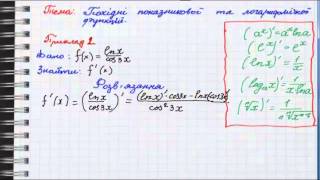 Тема: Похідні показникової та логарифмічної
функцій.
Приклад 1
Дано: f(x) = lnx/cos3x
Знайти: f'(x)
Розв'язання
f'(x) = (lnx/cos3x)' = ((lnx)'·cos3x - lnx(cos3x)')/cos²3x
(aˣ)' = aˣlna
(eˣ)' = eˣ
(lnx)' = 1/x
(logₐx)' = 1/(x lna)